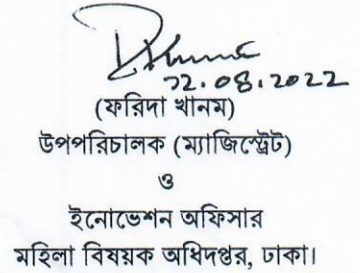 ১২.০৪.২০২২
(ফরিদা খানম)
উপপরিচালক (ম্যাজিস্ট্রেট)
ও
ইনোভেশন অফিসার
মহিলা বিষয়ক অধিদপ্তর, ঢাকা।